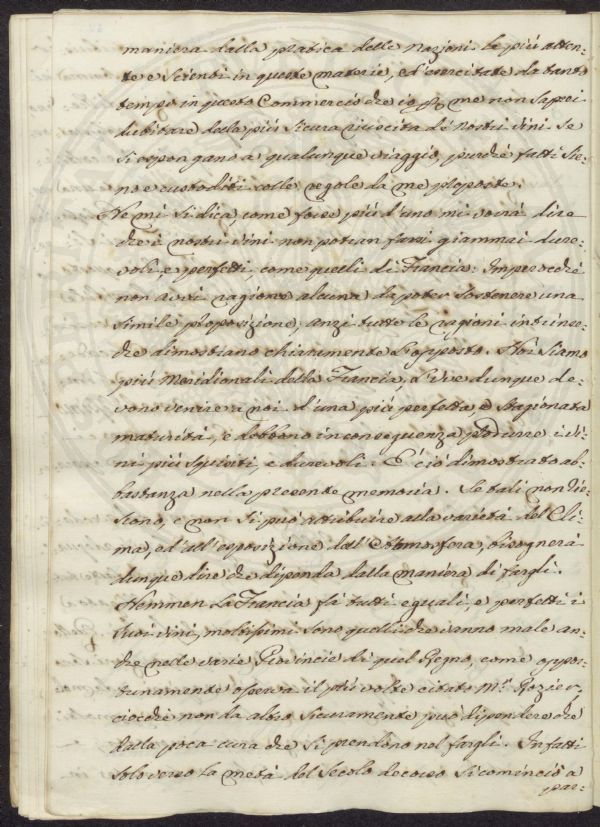 maniera dalla pratica delle nazioni le più atten=
te e scienti in queste materie, ed esercitate da tanto
tempo in questo Commercio che io per me non saprei
dubitare della più sicura riuscita de' nostri vini se
si espongano a qualunque viaggio, purchè fatti sie=
no e custoditi colle regole da me proposte.
Ne mi si dica, come forse più d'uno mi vorrà dire
che i nostri vini non potran farsi giammai dure=
voli, e perfetti, come quelli di Francia: Imperocchè
non avvi ragione alcuna da poter sostenere una
simile proposizione, anzi tutte le ragioni intrinse=
che dimostrano chiaramente l'opposto. Noi siamo
più Meridionali della Francia, l'Uve dunque de=
vono venire a noi d'una più perfetta, e stagionata
maturità, e debbono in conseguenza produrre i vi=
ni più squisiti, e durevoli. E' ciò dimostrato ab=
bastanza nella presente memoria. Se tali non rie=
scono, e non si può attribuire alla varietà del Cli=
ma, ed all'esposizione dell'Atmosfera, bisognerà
dunque dire che dipenda dalla maniera di fargli.
Nemmen la Francia fà tutti eguali, e perfetti i
suoi vini, moltissimi sono quelli che vanno male an=
che nelle varie Provincie di quel Regno, come oppor=
tunamente osserva il più volte citato Mr. Rozier,
ciocchè non da altro sicuramente può dipendere che
dalla poca cura che si prendono nel fargli. Infatti
solo verso la metà del Secolo decorso si cominciò a
par=